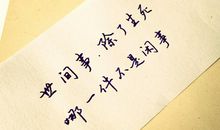 世间事.除了生死
哪一件不是闲事